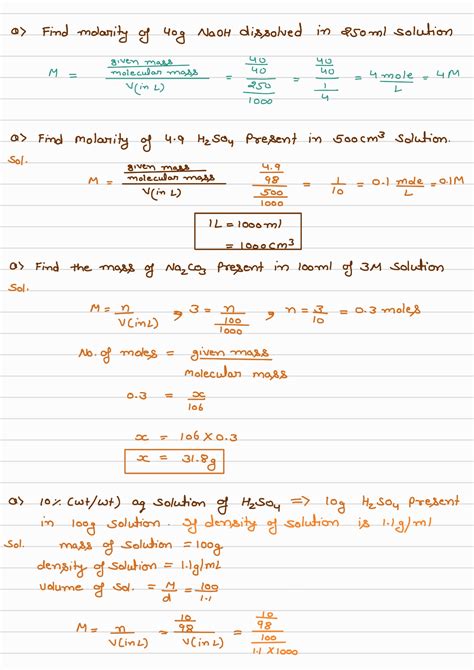 Q> Find molarity of 40g NaOH dissolved in 250ml solution
M = given mass / molecular mass / V(in L) = 40/40 / 250/1000 = 40/40 / 1/4 = 4 mole/L = 4M
Q> Find Molarity of 4.9 H₂SO₄ Present in 500cm³ Solution.
Sol.
M = given mass / molecular mass / V(in L) = 4.9/98 / 500/1000 = 1/10 = 0.1 mole/L = 0.1M
1L = 1000ml
= 1000cm³
Q> Find the mass of Na₂CO₃ Present in 100ml of 3M Solution
Sol.
M = n/V(inL) , 3 = n / 100/1000 , n = 3/10 = 0.3 moles
No. of moles = given mass / molecular mass
0.3 = x/106
x = 106 X 0.3
x = 31.8g
Q> 10% (wt/wt) aq Solution of H₂SO₄ => 10g H₂SO₄ Present
in 100g Solution. If density of Solution is 1.1g/ml
Sol. mass of Solution = 100g
density of Solution = 1.1g/mL
Volume of Sol. = M/d = 100/1.1
M = n/V(inL) = 10/98 / V(inL) = 10/98 / 100/1.1 X 1000